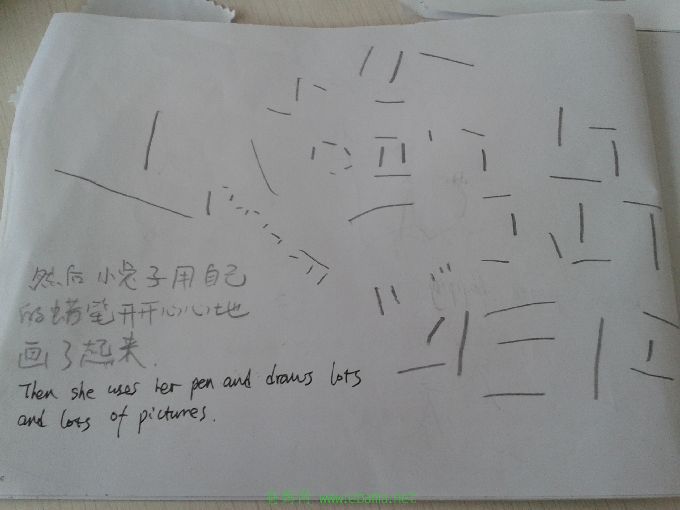 然后小兔子用自己
的蜡笔开开心心地
画了起来.
Then she uses her pen and draws lots
and lots of pictures.
www.cbama.net